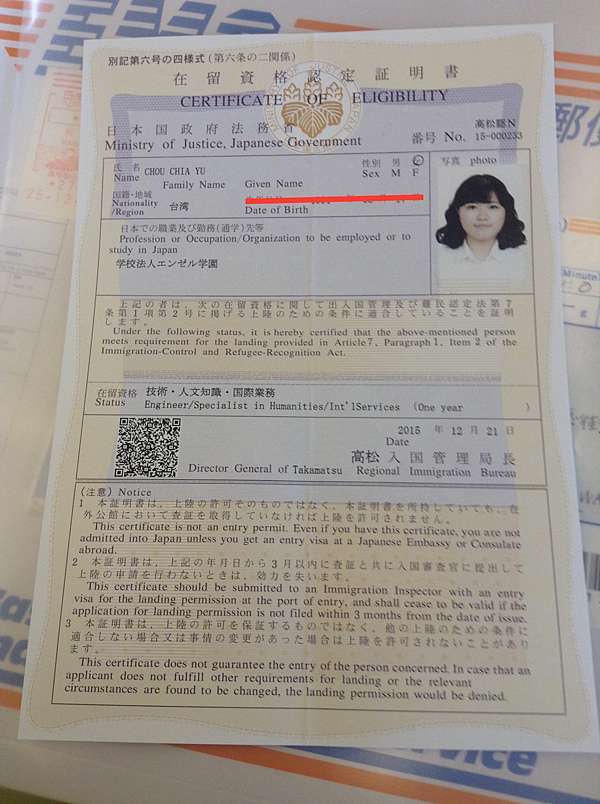 別記第六号の四様式(第六条の二関係)
在留資格認定証明書
CERTIFICATE OF ELIGIBILITY
日本国政府法務省
高松認N
Ministry of Justice, Japanese Government
番号 No. 15-000233
氏名 CHOU CHIA YU
性別 男
写真 photo
Name
Family Name Given Name
Sex M F
国籍・地域
Nationality
/Region 台湾
Date of Birth
日本での職業及び勤務(通学)先等
Profession or Occupation/Organization to be employed or to
study in Japan
学校法人エンゼル学園
上記の者は、次の在留資格に関して出入国管理及び難民認定法第7
条第1項第2号に掲げる上陸のための条件に適合していることを証明
します。
Under the following status, it is hereby certified that the above-mentioned person
meets requirement for the landing provided in Article7, Paragraph1, Item2 of the
Immigration-Control and Refugee-Recognition Act.
在留資格 技術・人文知識・国際業務
Status Engineer/Specialist in Humanities/Int'lServices (One year )
2015 年 12 月 21 日
Date
高松 入国管理局長
Director General of Takamatsu Regional Immigration Bureau
(注意) Notice
1 本証明書は、上陸の許可そのものではなく、本証明書を所持していても、在
外公館において査証を取得していなければ上陸を許可されません。
This certificate is not an entry permit. Even if you have this certificate, you are not
admitted into Japan unless you get an entry visa at a Japanese Embassy or Consulate
abroad.
2 本証明書は、上記の年月日から3月以内に査証と共に入国審査官に提出して
上陸の申請を行わないときは、効力を失います。
This certificate should be submitted to an Immigration Inspector with an entry
visa for the landing permission at the port of entry, and shall cease to be valid if the
application for landing permission is not filed within 3 months from the date of issue.
3 本証明書は、上陸の許可を保証するものではなく、他の上陸のための条件に
適合しない場合又は事情の変更があった場合は上陸を許可されないことがあり
ます。
This certificate does not guarantee the entry of the person concerned. In case that an
applicant does not fulfill other requirements for landing or the relevant
circumstances are found to be changed, the landing permission would be denied.